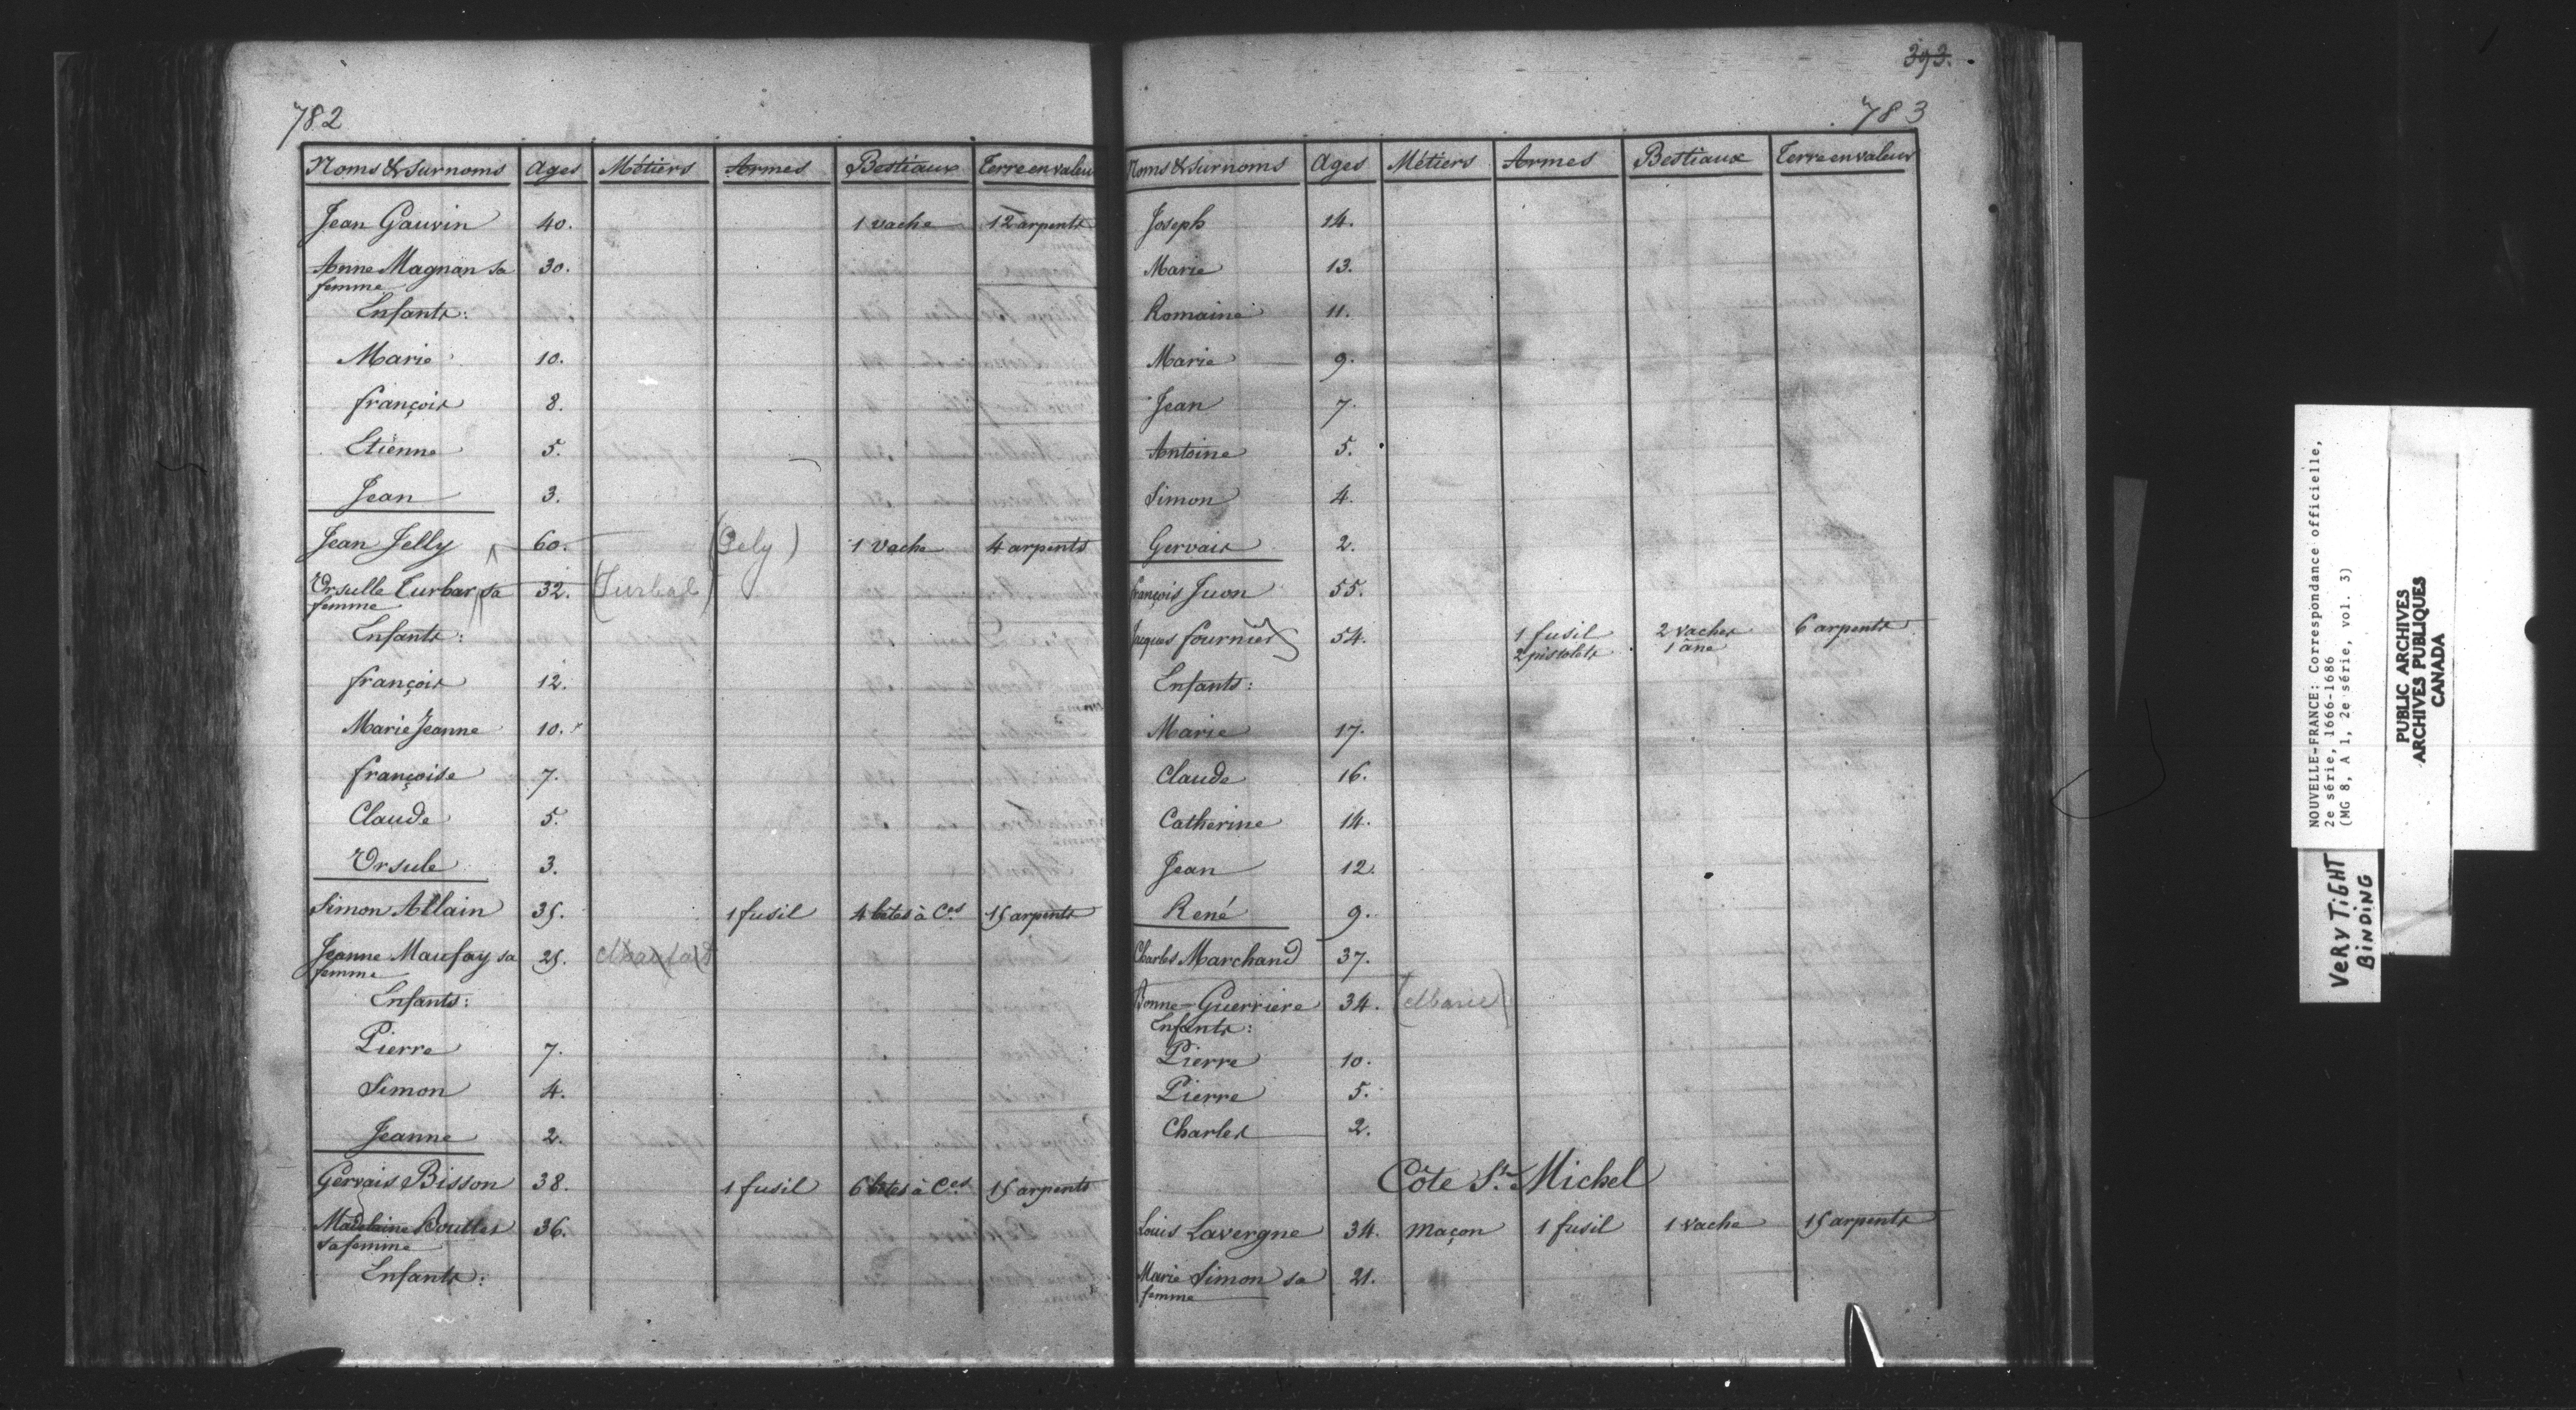 782
Noms & surnoms Ages Métiers Armes Bestiaux Terre en valeur
Jean Gauvin 40. 1 vache 12 arpents
Anne Magnan sa 30.
femme
Enfants:
Marie 10.
François 8.
Etienne 5.
Jean 3.
Jean Jelly 60. (Gely) 1 vache 4 arpents
Ursulle Turbar sa 32. (Turbal)
femme
Enfants:
François 12.
Marie Jeanne 10.
Françoise 7.
Claude 5.
Ursule 3.
Simon Allain 35. 1 fusil 4 bêtes à Ces 15 arpents
Jeanne Maufay sa 25.
femme
Enfants:
Pierre 7.
Simon 4.
Jeanne 2.
Gervais Bisson 38. 1 fusil 6 bêtes à Ces 15 arpents
Madelaine Boutlet 36.
sa femme
Enfants:
393.
783
Noms & surnoms Ages Métiers Armes Bestiaux Terre en valeur
Joseph 14.
Marie 13.
Romaine 11.
Marie 9.
Jean 7.
Antoine 5.
Simon 4.
Gervais 2.
François Juon 55.
Jacques Fournier 54. 1 fusil 2 vaches 6 arpents
2 pistolets 1 âne
Enfants:
Marie 17.
Claude 16.
Catherine 14.
Jean 12.
René 9.
Charles Marchand 37.
Bonne-Guerriere 34. (Marie)
Enfants:
Pierre 10.
Pierre 5.
Charles 2.
Côte St. Michel
Louis Lavergne 34. maçon 1 fusil 1 vache 15 arpents
Marie Simon sa 21.
femme
NOUVELLE-FRANCE: Correspondance officielle,
2e série, 1666-1686
(MG 8, A 1, 2e série, vol. 3)
PUBLIC ARCHIVES
ARCHIVES PUBLIQUES
CANADA
VERY TiGHT
BiNDiNG